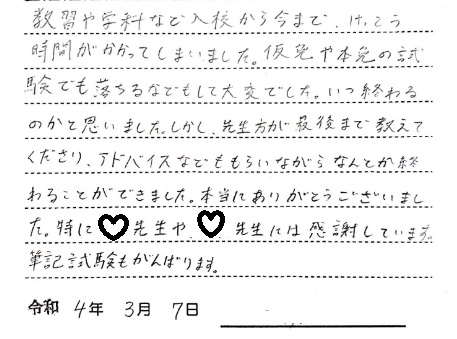 教習や学科など入校から今まで、けっこう
時間がかかってしまいました。仮免や本免の試
験でも落ちるなどもして大変でした。いつ終わる
のかと思いました。しかし、先生方が最後まで教えて
くださり、アドバイスなどももらいながらなんとか終
わることができました。本当にありがとうございまし
た。特に♡先生や、♡先生には感謝しています。
筆記試験もがんばります。
令和 4年 3月 7日